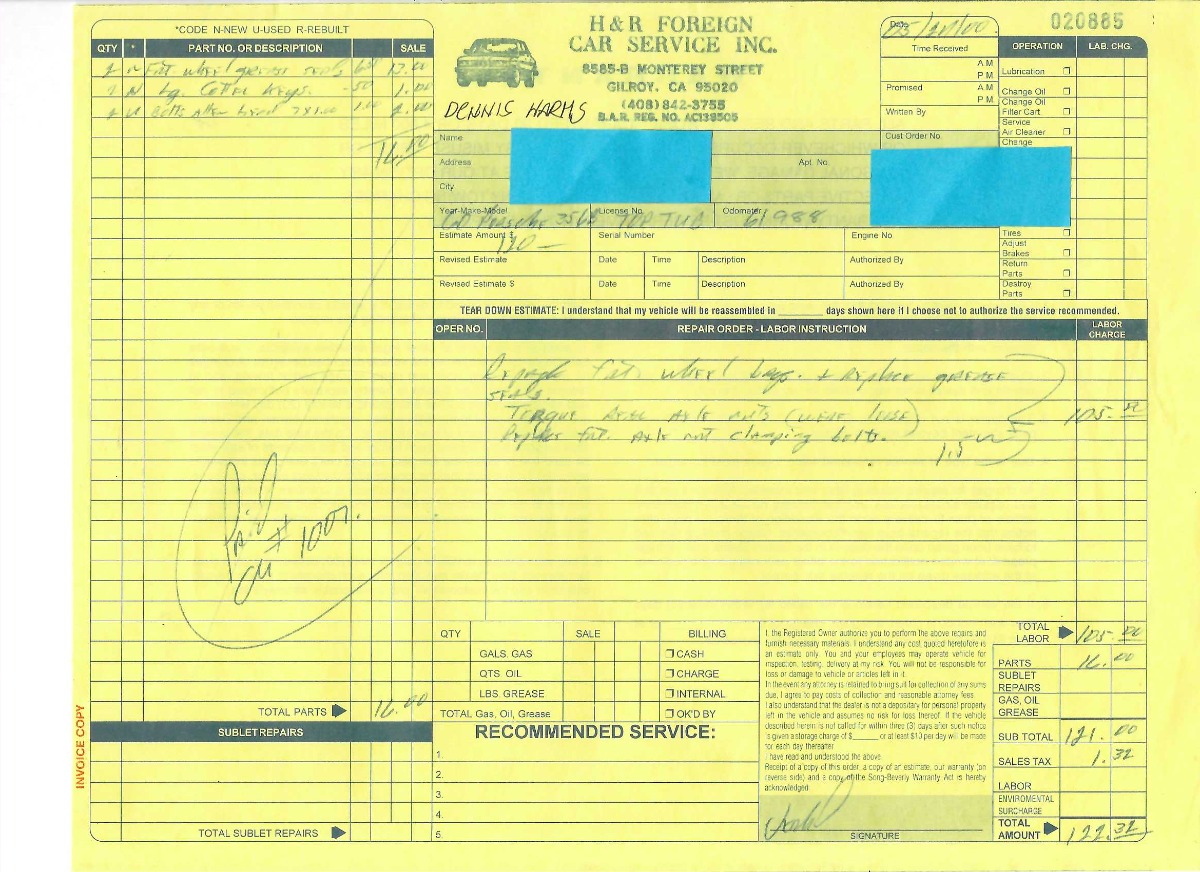 *CODE N-NEW U-USED R-REBUILT
QTY * PART NO. OR DESCRIPTION SALE
2 N Frt wheel grease seals 6.50 13.00
2 N Lg. Cotter keys. .50 1.00
2 N Bolts Allen head 1.00 2.00
16.00
H & R FOREIGN
CAR SERVICE INC.
8585-B MONTEREY STREET
GILROY, CA 95020
(408) 842-3755
B.A.R. REG. NO. AC138505
DENNIS HARMS
Name
Address Apt. No.
City
Year-Make-Model License No. Odometer
60 Porsche 356B TUB 61988
Estimate Amount $ Serial Number Engine No.
120 —
Revised Estimate Date Time Description Authorized By
Revised Estimate $ Date Time Description Authorized By
Date
Time Received
A M
P M
Promised A M
P M
Written By
Cust Order No.
020885
OPERATION LAB. CHG.
Lubrication
Change Oil
Change Oil
Filter Cart
Service
Air Cleaner
Change
Tires
Adjust
Brakes
Return
Parts
Destroy
Parts
TEAR DOWN ESTIMATE: I understand that my vehicle will be reassembled in ________ days shown here if I choose not to authorize the service recommended.
OPER NO. REPAIR ORDER - LABOR INSTRUCTION LABOR CHARGE
Repack frt. wheel brgs. + replace grease
seals.
Torque rear axle nuts (were loose) 105.00
Replace frt. axle nut clamping bolts.
1.5
Paid
CK # 1007.
TOTAL PARTS 16.00
SUBLET REPAIRS
TOTAL SUBLET REPAIRS
INVOICE COPY
QTY SALE BILLING
GALS. GAS CASH
QTS. OIL CHARGE
LBS. GREASE INTERNAL
TOTAL Gas, Oil, Grease OK'D BY
RECOMMENDED SERVICE:
1.
2.
3.
4.
5.
I, the Registered Owner authorize you to perform the above repairs and
furnish necessary materials. I understand any cost quoted heretofore is
an estimate only. You and your employees may operate vehicle for
inspection, testing, delivery at my risk. You will not be responsible for
loss or damage to vehicle or articles left in it.
In the event any attorney is retained to bring suit for collection of any sums
due, I agree to pay costs of collection and reasonable attorney fees.
I also understand that the dealer is not a depositary for personal property
left in the vehicle and assumes no risk for loss thereof. If the vehicle
described herein is not called for within three (3) days after such notice
is given a storage charge of $______ or at least $10 per day will be made
for each day thereafter.
I have read and understood the above.
Receipt of a copy of this order, a copy of an estimate, our warranty (on
reverse side) and a copy of the Song-Beverly Warranty Act is hereby
acknowledged
SIGNATURE
TOTAL LABOR 105.00
PARTS 16.00
SUBLET REPAIRS
GAS, OIL GREASE
SUB TOTAL 121.00
SALES TAX 1.32
LABOR
ENVIROMENTAL SURCHARGE
TOTAL AMOUNT 122.32